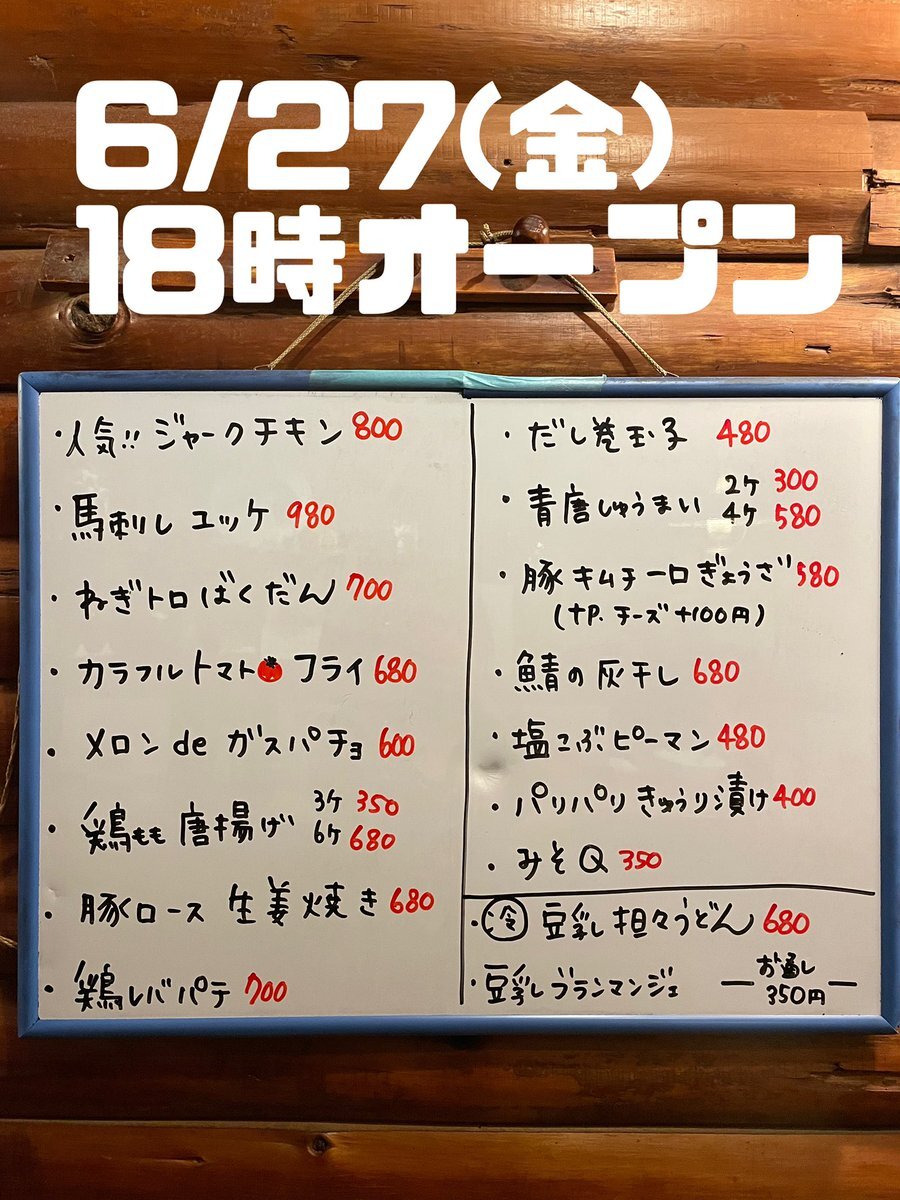 6/27(金)
18時オープン
・人気!! ジャークチキン 800
・馬刺し ユッケ 980
・ねぎトロばくだん 700
・カラフルトマト🍅フライ 680
・メロン de ガスパチョ 600
・鶏もも 唐揚げ 3ケ 350
6ケ 680
・豚ロース 生姜焼き 680
・鶏レバパテ 700
・だし巻玉子 480
・青唐しゅうまい 2ケ 300
4ケ 580
・豚キムチーロぎょうざ 580
(+P. チーズ +100円)
・鯖の灰干し 680
・塩こぶピーマン 480
・パリパリきゅうり漬け 400
・みそQ 350
・冷 豆乳担々うどん 680
・豆乳ブランマンジェ
お通し
350円